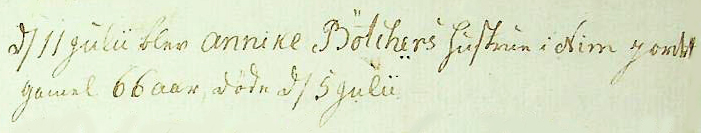 d/ 11 Julii blev Annike Bötchers Hustrue i Nim jordet
gamel 66 aar, döde d/ 5 Julii